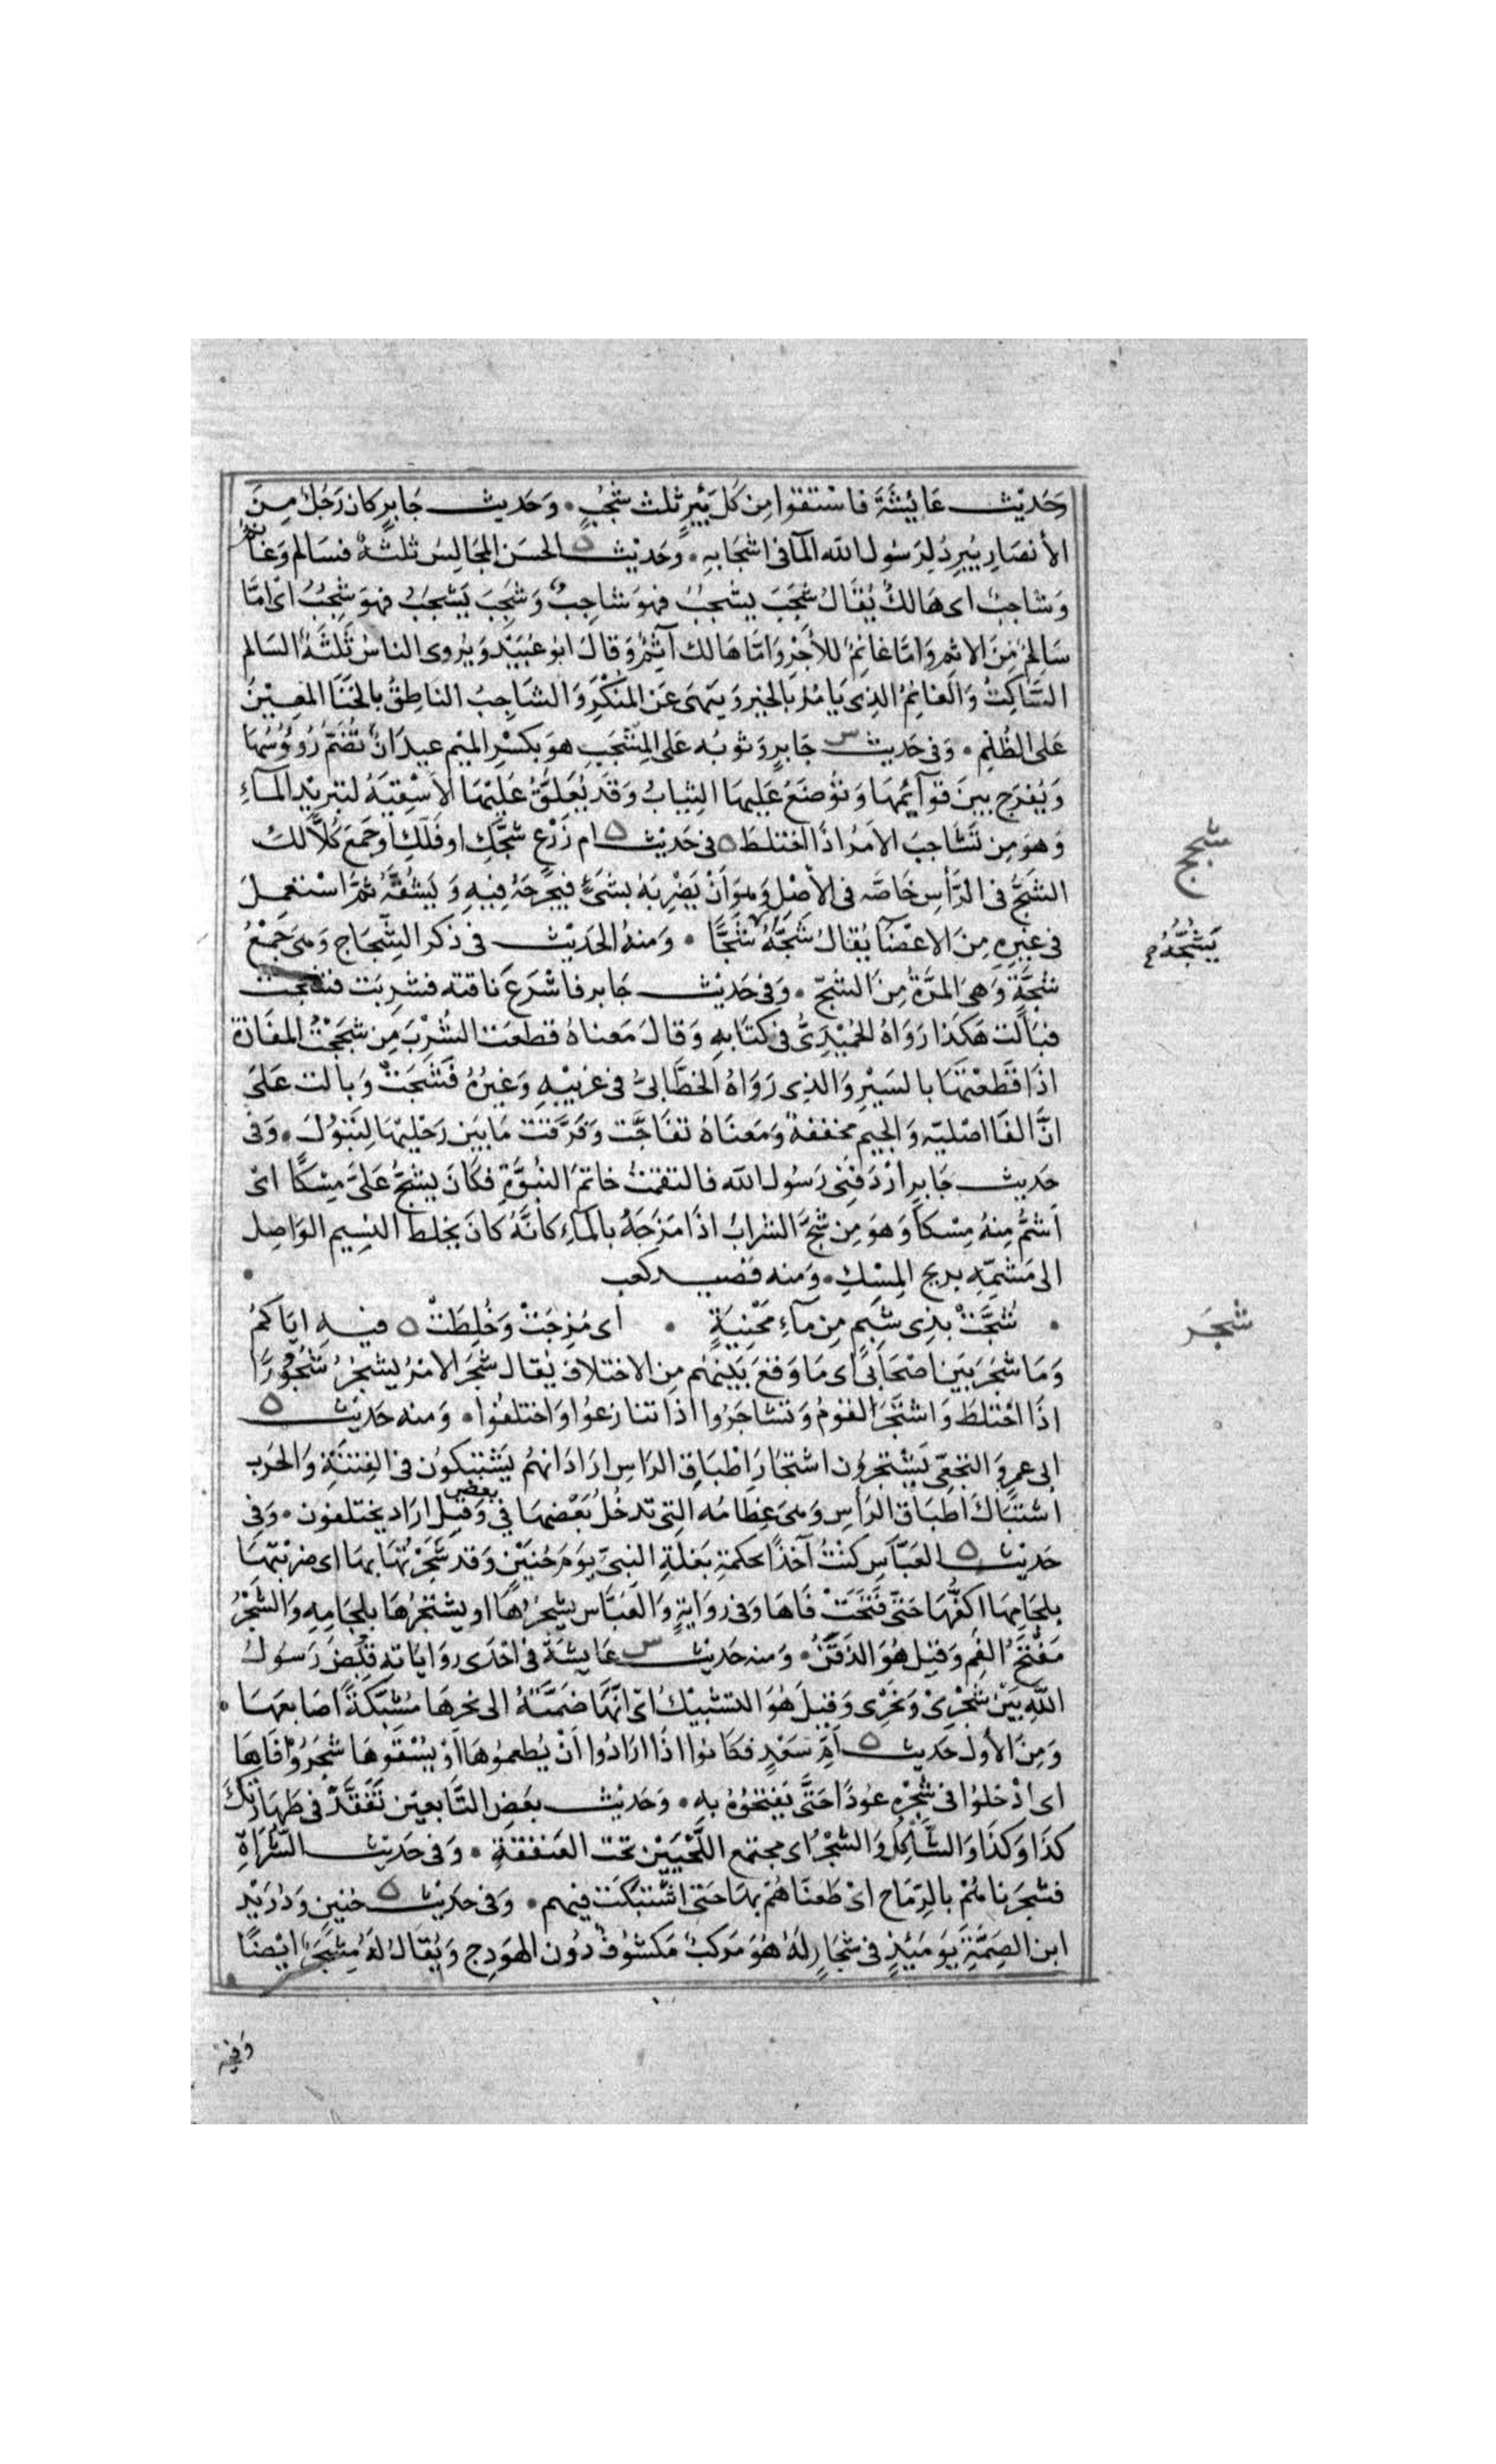 وَحَدِيْث عَائِشَةَ فَاسْتَقَوْا مِن كُلّ بِئْرٍ ثَلٰث شُجُبٍ • وَحَديث جَابِرٍ كَان رَجُلٌ مِنَ
الأنصَارِ يُبَرِدُ لِرَسُول الله المآ فى اشجَابِهِ • وَحَديْث الحسَن المجَالِسُ ثلثةٌ فسَالم وَغانم
وَشاجبٌ اى هَالكٌ يُقَالُ شَجَبَ يشجبُ فهوَ شاجِبٌ وَشَجِبَ يَشجَبُ فهوَ شَجِبٌ اىْ امَّا
سَالِمٌ مِنَ الاثم وَامَّا غَانِمٌ للأجْرِ وَامَّا هَالك آثِمٌ وَقالَ ابو عُبَيْد وَيُروى الناسُ ثَلثَةٌ السَالم
السَّاكِتُ وَالغَانِمُ الذِى يَامُرُ بالخير وَينهَى عَن المُنكَرِ وَالشاجِبُ الناطِقُ بالخَنَا المعِيْنُ
عَلى الظُلْمِ • وَفى حَديث س جَابِرٍ وَثوبُه عَلى المِشْجَبِ هوَ بكسْرِ الميْمِ عيدَانٌ تُضَمّ رُوؤُسُهَا
وَيُفرَج بينَ قوَآئِمهَا وَتُوضَعُ عَليهَا الثيابُ وَقَد يُعَلقُ عَليْهَا الأَسْقِيَةُ لتبريْدِ المآءِ
وَهوَ مِن تشَاجَبَ الامرُ اذَا اختلطَ ٥ فى حَديْث ٥ ام زَرْعٍ شجّكِ او فلّكِ او جَمَعَ كُلاًّ لكِ
الشَجُّ فى الرَّأسِ خَاصَّه فى الأصْلِ وَهوَ أنْ يَضْرِبَهُ بشَىْءٍ فيجْرحَهُ فِيهِ وَيَشُقَّهُ ثمَّ اسْتعملَ
فى غيرِهِ مِنَ الاعْضَآ يُقَالُ شَجَّهُ شَجًّا • وَمنهُ الحَدِيْث فى ذكر الشِّجَاج وَهىَ جَمْعُ
شَجَّةٍ وَهىَ المرَّةُ مِنَ الشجّ • وَفى حَديث جَابر فاشْرَعَ ناقته فشرِبَت فشجت
فبَالَت هَكذَا رَوَاهُ الحُمَيْدِىُّ فى كتَابهِ وَقَالَ مَعناهُ قطعَت الشُرْبَ مِن شجَجْتُ المفَازةَ
اذَا قَطَعْتَهَا بالسَيْرِ وَالذِى رَوَاهُ الخطَّابىُّ فى غريبْهِ وَغيرُهُ فَشَجَتْ وَبَالت عَلىَ
انَّ الفَا اصْليّه وَالجيم مخففةٌ وَمَعنَاهُ تفَاجَّت وَفَرَّقت مَا بَيَن رجْليْهَا لِتَبُولَ • وَفى
حَديث جَابِر ارْدَفَنِى رَسُول الله فالتقمتُ خاتمَ النبُوَّةِ فكَانَ يشجُّ عَلىَّ مِسْكاً اىْ
اَشمُّ مِنهُ مِسْكاً وَهوَ مِن شجَّ الشرابَ اذَا مَزَجَهُ بالمآءِ كَأنَّهُ كانَ يخلط النسِيم الوَاصِل
الى مَشَمِّهِ بريح المِسْكِ • وَمنه قصيد كعب •
• شُجَّتْ بذِى شَبَمٍ مِن مآءِ مَحْنِيَةٍ • اى مُزِجَتْ وَخُلِطَتْ ٥ فيه ايَاكمُ
وَمَا شجَرَ بَينَ اصْحَابى اى مَا وَقعَ بَيْنهُم مِن الاختلاف يُقال شجَرَ الامْرُ يشجرُ شُجُورًا
اذَا اخْتلطَ وَاشتَجَرَ القومُ وَتشَاجَرُوا اذا تنازعُوا وَاختلفُوا • وَمنه حَديْث ٥
ابى عمرٍو النخعِّى يَشْتجرُون اشتجَارَ اطْبَاقِ الراسِ ارَادَ انهُم يَشْتبِكوُن فى الفِتنَةِ وَالحَرب
اشتبَاكَ اطبَاقِ الرَأسِ وَهىَ عِظَامُه التِى تدخُلُ بَعْضهَا فى بعض وَقيل ارَاد يختلفون • وَفى
حَديْث ٥ العَبَّاسِ كنتُ آخذاً بحكمةِ بَغلَةِ النبِىّ يوَم حُنَيْنٍ وَقد شَجَرْتُهَا بهَا اى ضرَبْتهَا
بلجَامِهَا اكُفُّهَا حَتى فَتَحَتْ فَاهَا وَفى روَايةٍ وَالعَبَّاس يشجُرُهَا او يشتجِرُهَا بلِجَامِهِ وَالشجْرُ
مَفْتَحُ الفِم وَقيل هُوَ الذقَنُ • وَمنه حَديْث س عَايشَة فى احْدَى روَايَاته قُبِضَ رَسُولُ
اللّهِ بَيْنَ شَجْرِىْ وَنَحْرِى وَقيلَ هُوَ التشبِيْكُ اىْ انّهَا ضَمَّتهُ الى نحرِهَا مُشَبِّكَةً اصَابعهَا •
وَمِنَ الأول حَديث ٥ اُمِّ سَعْدٍ فكَانوا اذَا ارَادُوا اَنْ يُطعِموُهَا اَوْ يُسْقوُهَا شجَرُوْا فَاهَا
اى ادْخلوُا فى شَجْرِهِ عُودًا حَتَّى يَفتحوُهُ بهِ • وَحَديْث بعَضِ التَّابعيْن تَفَقَّدْ فى طَهَارَتِكَ
كذَا وَكذَا وَالشَّاكِلَ وَالشجْرُ اى مجتمع اللَّحْيَيْن تحت العَنفقةِ • وَفى حَديْث الشُّرَاةِ
فشجَرناهُمْ بالرّمَاح اىْ طَعنَّاهُمْ بهَا حَتىّ اشْتبَكَت فيهم • وَفى حَديْث ٥ حُنينٍ وَدُرَيْد
ابن الصِمَّةِ يَوَمَئِذٍ فى شجَارٍ لَهُ هُوَ مَركبٌ مَكشوُفٌ دُون الهَودِج وَيُقَالُ لَهُ مِشجَرٌ ايْضًا
شجج
يَشُجُّهُ
شجَر
وَفى